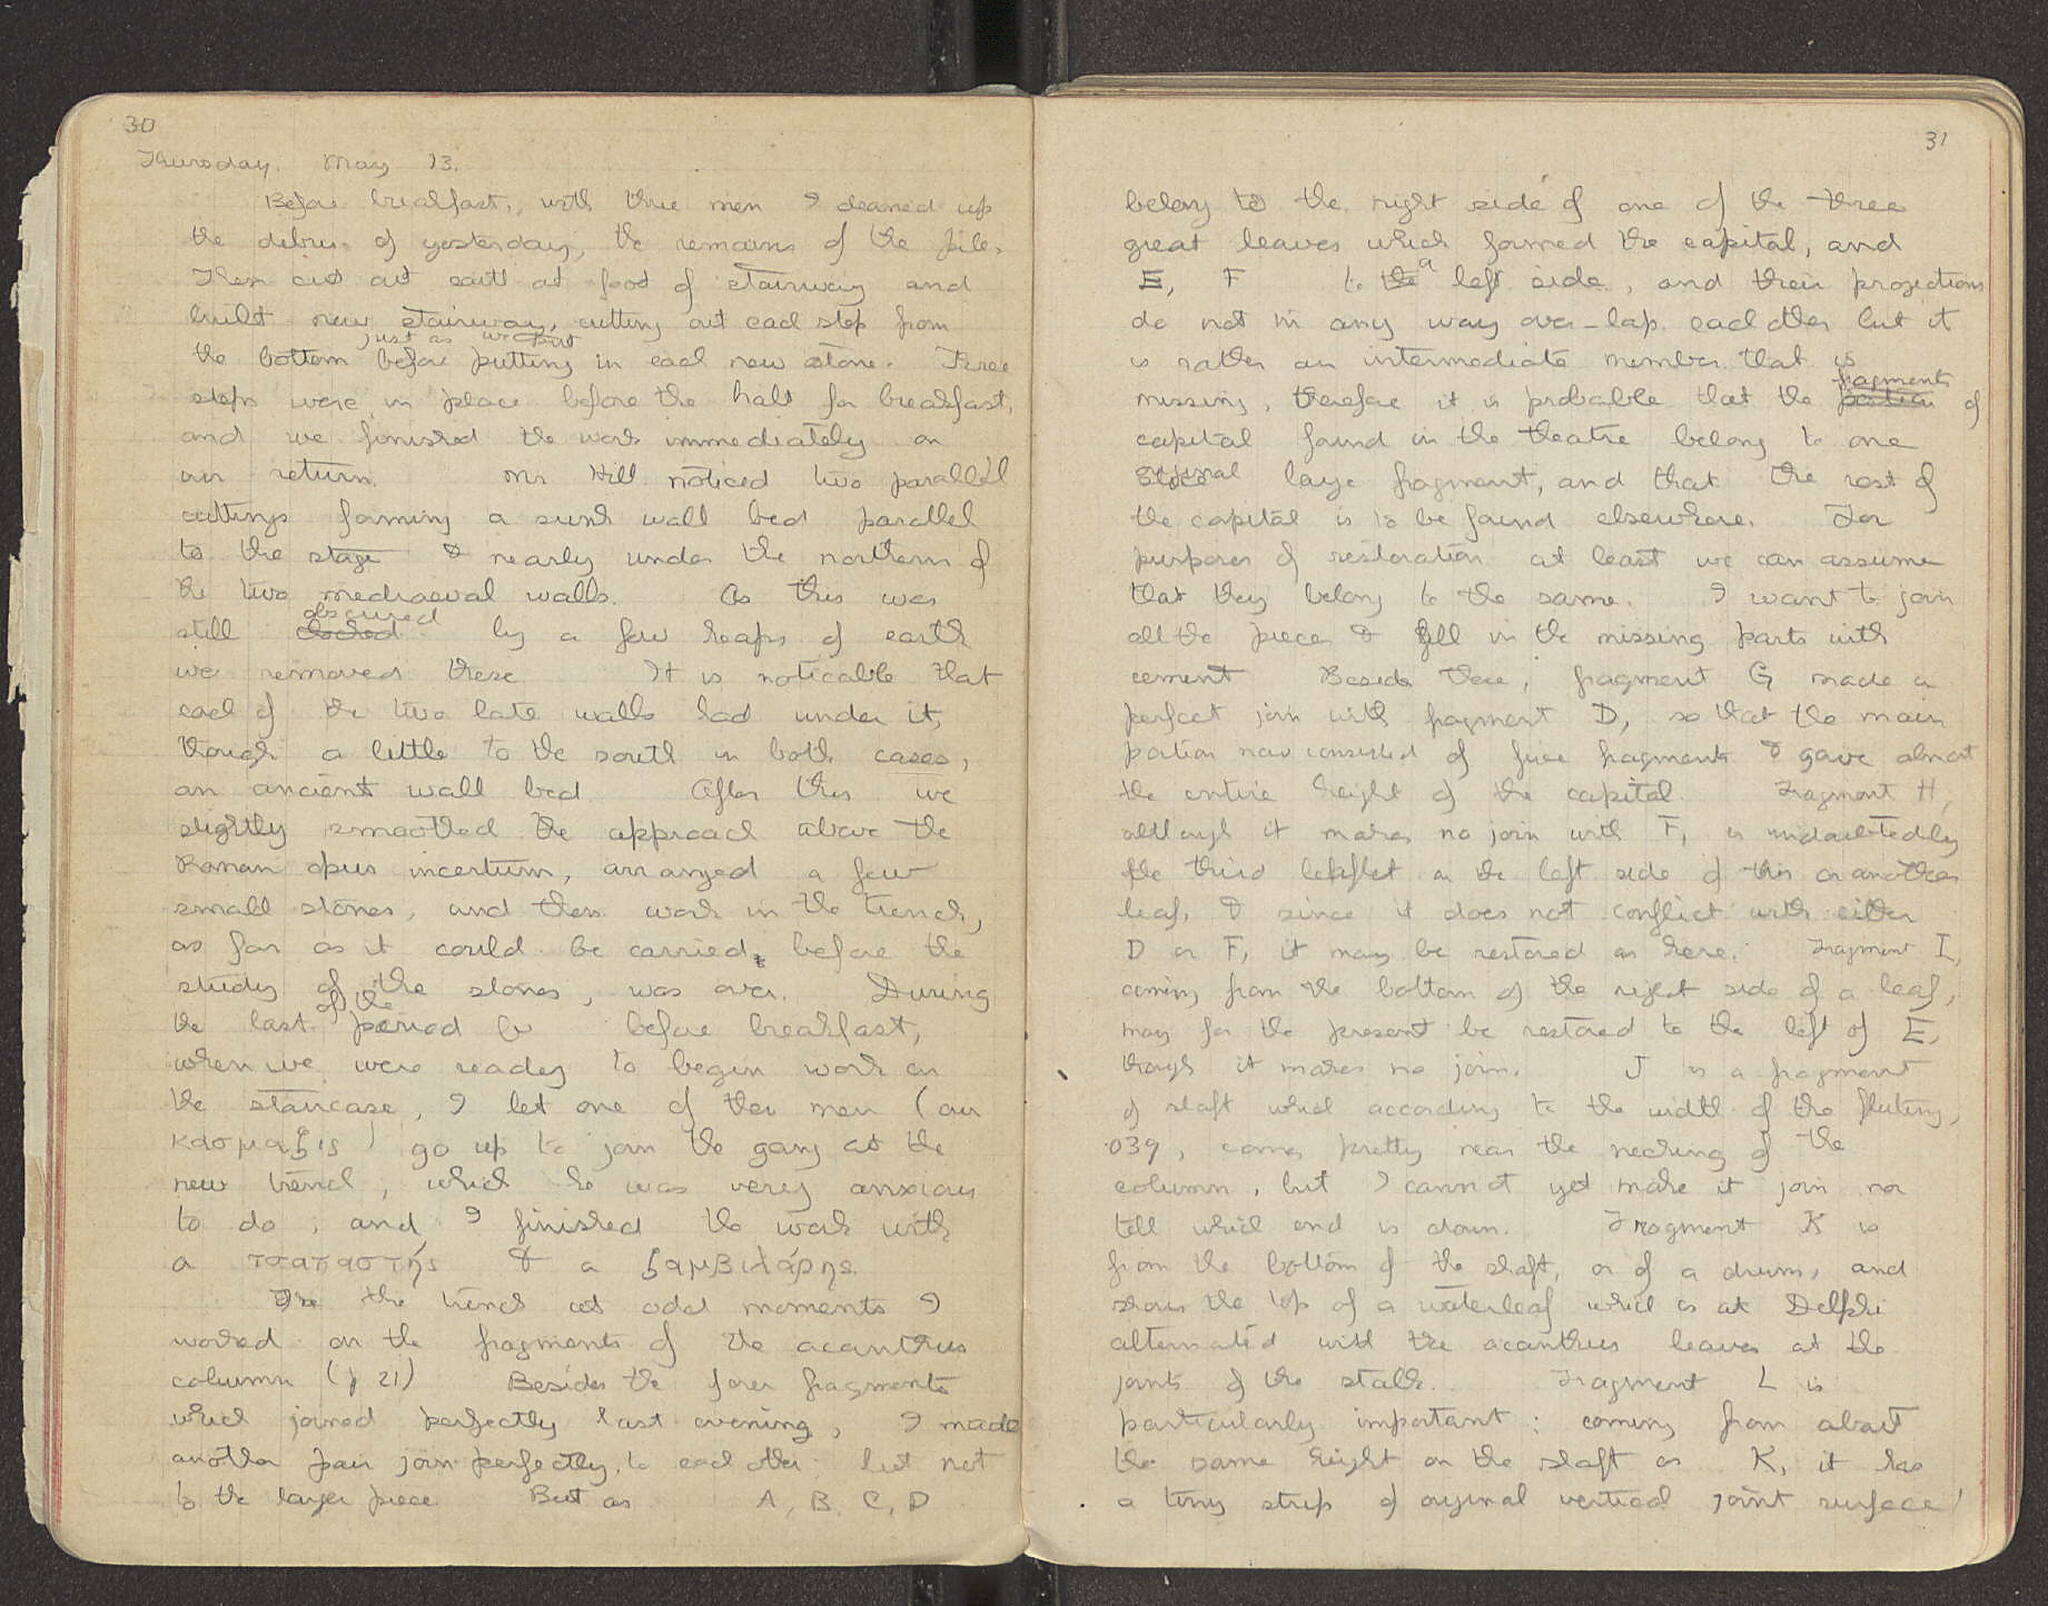 30
Thursday. May 13.
Before breakfast, with three men I cleaned up
the debris of yesterday, the remains of the pile.
Then cut out earth at foot of stairway and
built new stairway, cutting out each step from
just as we cut
the bottom before putting in each new stone. Three
steps were in place before the halt for breakfast,
and we finished the work immediately on
our return. Mr Hill noticed two parallel
cuttings forming a sunk wall bed parallel
to the stage & nearly under the northern of
the two mediaeval walls. As this was
obscured
still by a few heaps of earth
we removed these It is noticable that
each of the two late walls had under it,
though a little to the south in both cases,
an ancient wall bed After this we
slightly smoothed the approach above the
Roman opus incertum, arranged a few
small stones, and then work in the trench,
as far as it could be carried, before the
study of the stones, was over. During
of the
the last period before breakfast,
when we were ready to begin work on
the staircase, I let one of the men (our
κασμαζις) go up to join the gang at the
new trench, which he was very anxious
to do; and I finished the work with
a τσαπαστής & a ζαμβιλάρης.
In the trench at odd moments I
worked on the fragments of the acanthus
column (p 21) Besides the four fragments
which joined perfectly last evening, I made
another pair join perfectly, to each other but not
to the larger piece But as A, B, C, D
31
belong to the right side of one of the three
great leaves which formed the capital, and
E, F to the a left side, and their projections
do not in any way over-lap each other but it
is rather an intermediate member that is
fragments
missing, therefore it is probable that the portion of
capital found in the theatre belong to one
original large fragment, and that the rest of
the capital is to be found elsewhere. For
purposes of restoration at least we can assume
that they belong to the same. I want to join
all the pieces & fill in the missing parts with
cement Beside these, fragment G made a
perfect join with fragment D, so that the main
portion now consisted of five fragments & gave almost
the entire height of the capital. Fragment H,
although it makes no join with F, is undoubtedly
the third leaflet on the left side of this or another
leaf, & since it does not conflict with either
D or F, it may be restored as here. Fragment I,
coming from the bottom of the right side of a leaf,
may for the present be restored to the left of E,
though it makes no join. J is a fragment
of shaft which according to the width of the fluting,
.039, comes pretty near the necking of the
column, but I cannot yet make it join nor
tell which end is down. Fragment K is
from the bottom of the shaft, or of a drum, and
shows the top of a waterleaf which as at Delphi
alternated with the acanthus leaves at the
joints of the stalk. Fragment L is
particularly important: coming from about
the same height on the shaft as K, it has
a tiny strip of original vertical joint surface